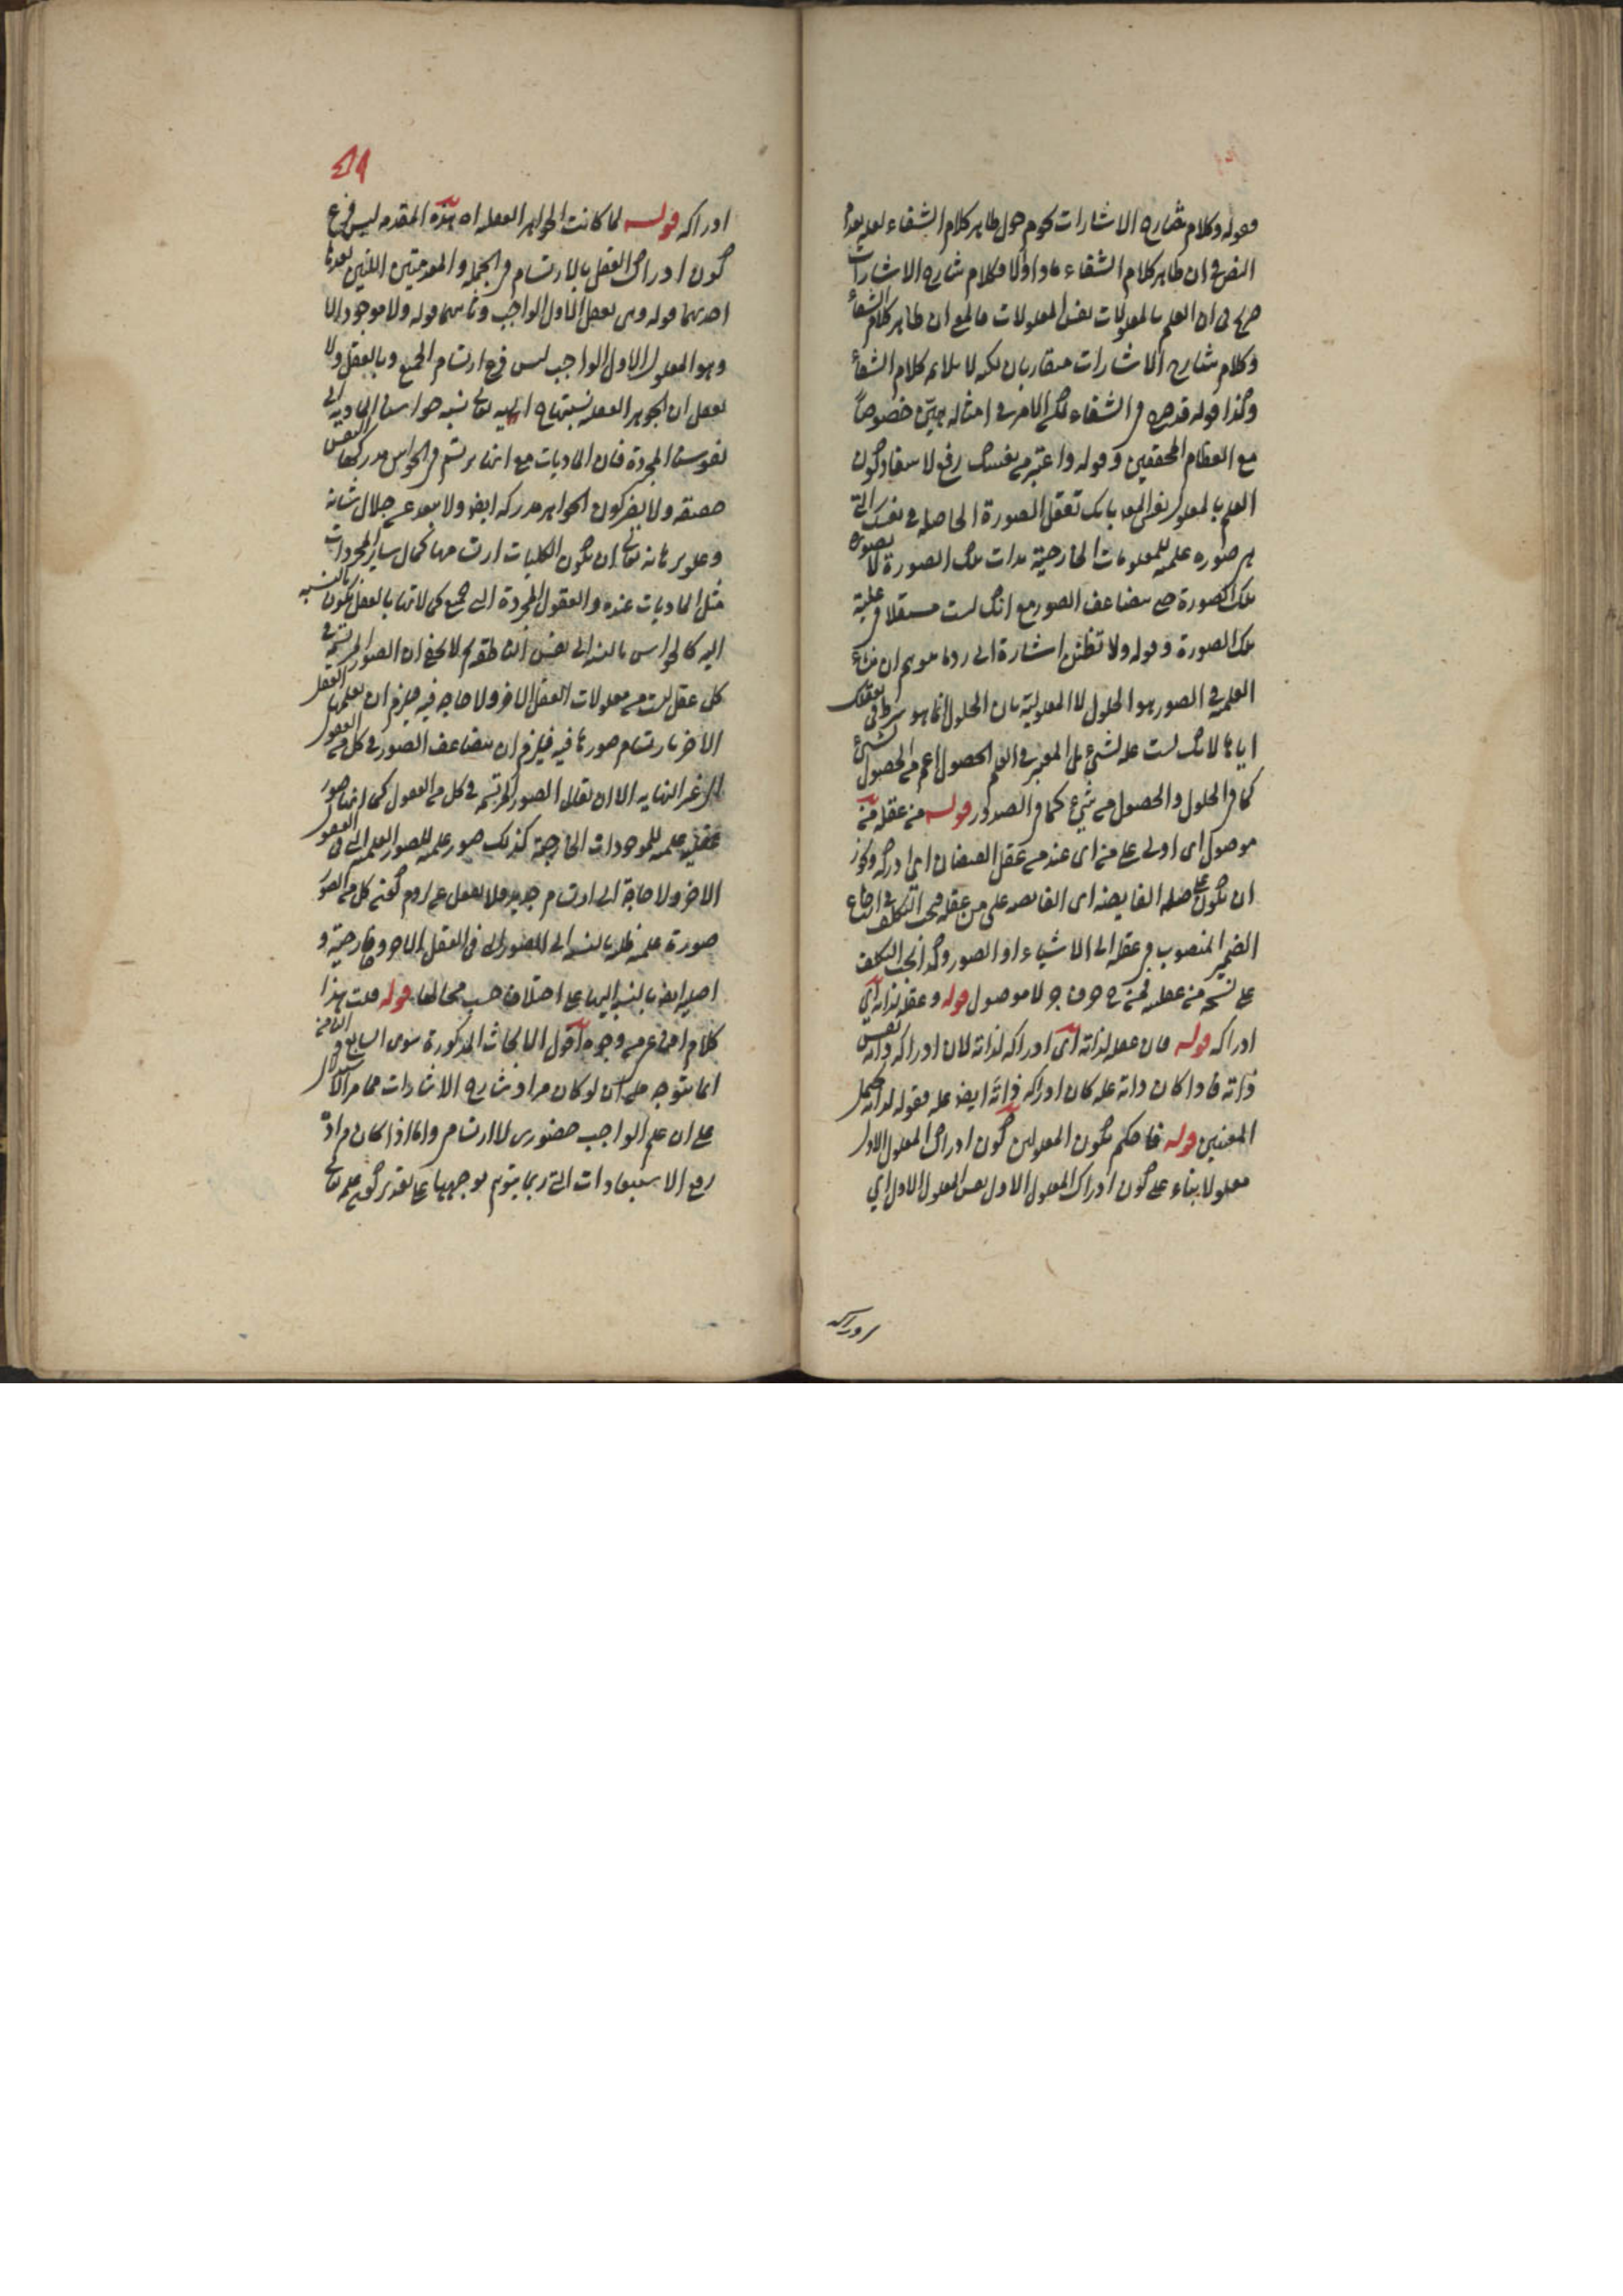 فقوله وكلام شارح الاشارات يحوم حول ظاهر كلام الشفاء
النص في ان ظاهر كلام الشفاء ماذا اولا وكلام شارح الاشارات
صريح في ان العلم بالمعلولات نفس المعلولات فالمع ان ظاهر كلام الشفاء
وكلام شارح الاشارات متقاربان لكنه لا يلائم كلام الشفاء
وكذا قوله قدس سره في الشفاء لكن الامر في امثاله هين خصوصاً
مع العظام المحققين وقوله واعتبر من نفسك رفع لاستبعاد كون
العلم بالمعلول نفس المعلول بانك تعقل الصورة الحاصلة في نفسك التي
هي صورة علمية للمعلومات الخارجية بذات تلك الصورة لا بصورة
تلك الصورة حتى يتضاعف الصور مع انك لست مستقلا في علية
تلك الصورة وقوله ولا تظنن اشارة الى رد ما يتوهم ان منشاء
العلمية في الصور هو الحلول لا المعلولية بان الحلول انما هو شرط في تعقلك
اياها لانك لست علة لشئ بل المعتبر في العلم الحصول اعم من الحصول لشئ
كما في الحلول والحصول من شئ كما في الصدور قوله من عقله من
موصول اى اولى على من اى عند من عقل الفيضان اى ادركه ويجوز
ان يكون على صلة الفايضة اى الفايضة على من عقله فيجب التكلف في ارجاع
الضمير المنصوب في عقله الى الاشياء او الصور وكذا يجب التكلف
على نسخة من عقله فمن ح حرف جر لا موصول قوله وعقله لذاته اى
ادراكه قوله فان عقله لذاته اى ادراكه لذاته لان ادراكه ذاته نفس
ذاته فاذا كان ذاته علة كان ادراكه ذاته ايضا علة فقوله لذاته يحتمل
المعنيين قوله فاحكم بكون المعلولين كون ادراك المعلول الاول
معلولا بناء على كون ادراك المعلول الاول نفس المعلول الاول اى
ادراكه
ادراكه قوله لما كانت الجواهر العقلية اه هذه المقدمة ليس فرع
كون ادراك العقل بالارتسام في الجملة والمقدمتين اللتين بعدها
احديهما قوله وهى تعقل الاول الواجب وثانيهما قوله ولا موجود الا
وهو المعلول للاول الواجب ليس فرع ارتسام الجميع وبالعقل ولا
تعقل ان الجواهر العقلية نسبتها اليه تعالى نسبة حواسنا المادية الى
نفوسنا المجردة فان الماديات مع انها ترتسم في الحواس مدركها النفس
حقيقة ولا يضر كون الجواهر مدركة ايضا ولا يبعد عن جلال شانه
وعلو برهانه تعالى ان يكون الكليات ارتسامها كحال ساير المجردات
مثل الماديات عنده والعقول المجردة الى جميع كمالاتها بالفعل يكون بالنسبة
اليه كالحواس بالنسبة الى نفس الناطقة ثم لا يخفى ان الصور المرتسمة في
كل عقل ليست من معلولات العقل الاخر ولا حاجة فيه فيلزم ان يعلمها العقل
الاخر بارتسام صورها فيه فيلزم ان يتضاعف الصور في كل من العقول
الى غير النهاية الا ان يقال الصور المرتسمة في كل من العقول كما انها صور
علمية للموجودات الخارجية كذلك صور علمية للصور العلمية التي في العقول
الاخر ولا حاجة الى ارتسام جديد
صورة علمية ظلية بالنسبة الى الصور التي في العقل الاخر وخارجية و
اصلية ايضا بالنسبة اليها على اختلاف حسب محالها قوله قلت هذا
كلام اقناعي من وجوه اقول الابحاث المذكورة سوى السابع والثامن
انما يتوجه على ان لو كان مراد شارح الاشارات مما مر الاستدلال
على ان علم الواجب حضورى لا ارتسامى واما اذا كان مراده
رفع الاستبعادات التي ربما يتوهم توجهها على تقدير كون علمه تعالى